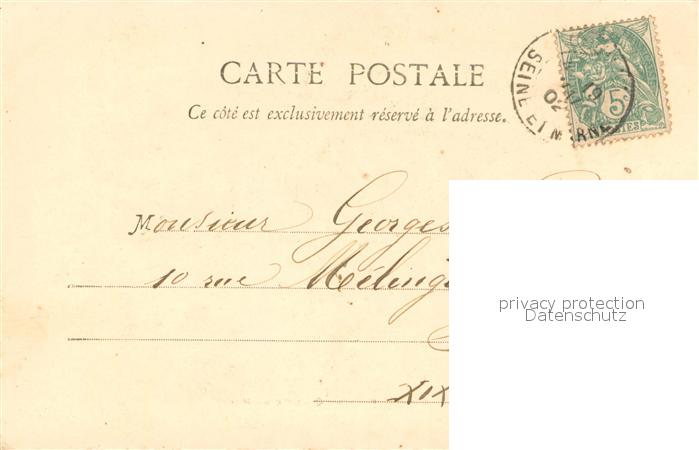 CARTE POSTALE
Ce côté est exclusivement réservé à l'adresse.
SEINE ET MARNE
19
02
5
POSTES
Monsieur Georges
10 rue Mélingue
privacy protection
Datenschutz
XIX